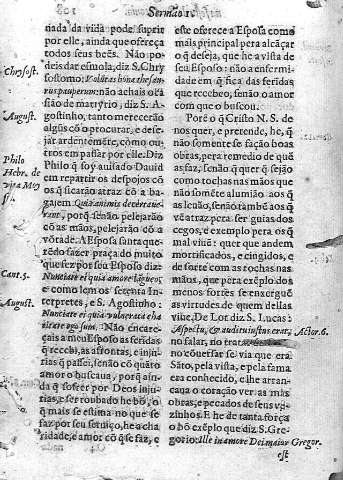 Sermão 1.
nada da vida pode suprir
por elle, ainda que ofereça
todos seus beẽs. Não po
deis dar esmola, diz S. Chry
sostomo:
não achais ora
sião de martyrio, diz S. A
gostinho, tanto merecerão
algũs cõ o procurar, e desej
jar ardentemẽte, como ou
tros em passar por elle. Diz
Philo q̃ foy ausado Dauid
em repartir os despojos cõ
os q̃ ficarão atraz cõ a ba
gajem. Quia animis decerta ue
rant, porq̃ senão pelejarão
cõ as mãos, pelejarão cõ a
võtade. A Esposa santa que
rẽdo fazer praça do muito
que fez por seu Esposo diz:
Nunciate ei quia amore lãgueo,
e como lem os setenta In
terpretes, e S. Agostinho:
Nunciate ei quia vulnerata cha
ritate ego sum. Não encare
çais a meu Esposo as feridas
q̃ recebi, as afrontas, e injur
rias q̃ passei, senão cõ quãto
amor o busquei, porq̃ ain
da q̃ sofrer por Deos injur
rias, e ser roubado he bõ, o
q̃ mais se estima no que se
faz por seu seruiço, he a cha
ridade, e amor cõ q̃ se faz, e
Chrysost.
August.
Philo
Hebr. de
vita Moy
si.
Cant. 5.
August.
este oferece a Esposa como
mais principal pera alcãçar
o q̃ deseja, que he a vista de
seu Esposo: não a enfermi
dade em q̃ fica das feridas
que recebeo, senão o amor
com que o buscou.
Porẽ o q̃ Cristo N. S. de
nos quer, e pretende, he, q̃
não somente se fação boas
obras, pera remedio de quẽ
as faz, senão q̃ quer q̃ sejão
como tochas nas mãos que
não somẽte alumião, aos q̃
as leuão, senão tambẽ aos q̃
vẽ atraz pera ser guias dos
cegos, e exemplo pera os q̃
mal viuẽ: quer que andem
mortificados, e cingidos, e
de sorte com as tochas nas
mãos, que pera exẽplo dos
menos fortes se enxerguẽ
as virtudes de quem dellas
viue. De Lot diz S. Lucas:
Aspectu, & auditu iustus erat,
no falar, no trato
no cõuersar se via que era
Sãto, pela vista, e pela fama
era conhecido, e lhe arran
caua o coração ver as más
obras, e pecados de seus vi
zinhos. E he de tanta força
o bõ exemplo que diz S. Gre
gorio: Ille in amore Dei maior
Actor. 6.
Gregor.
est